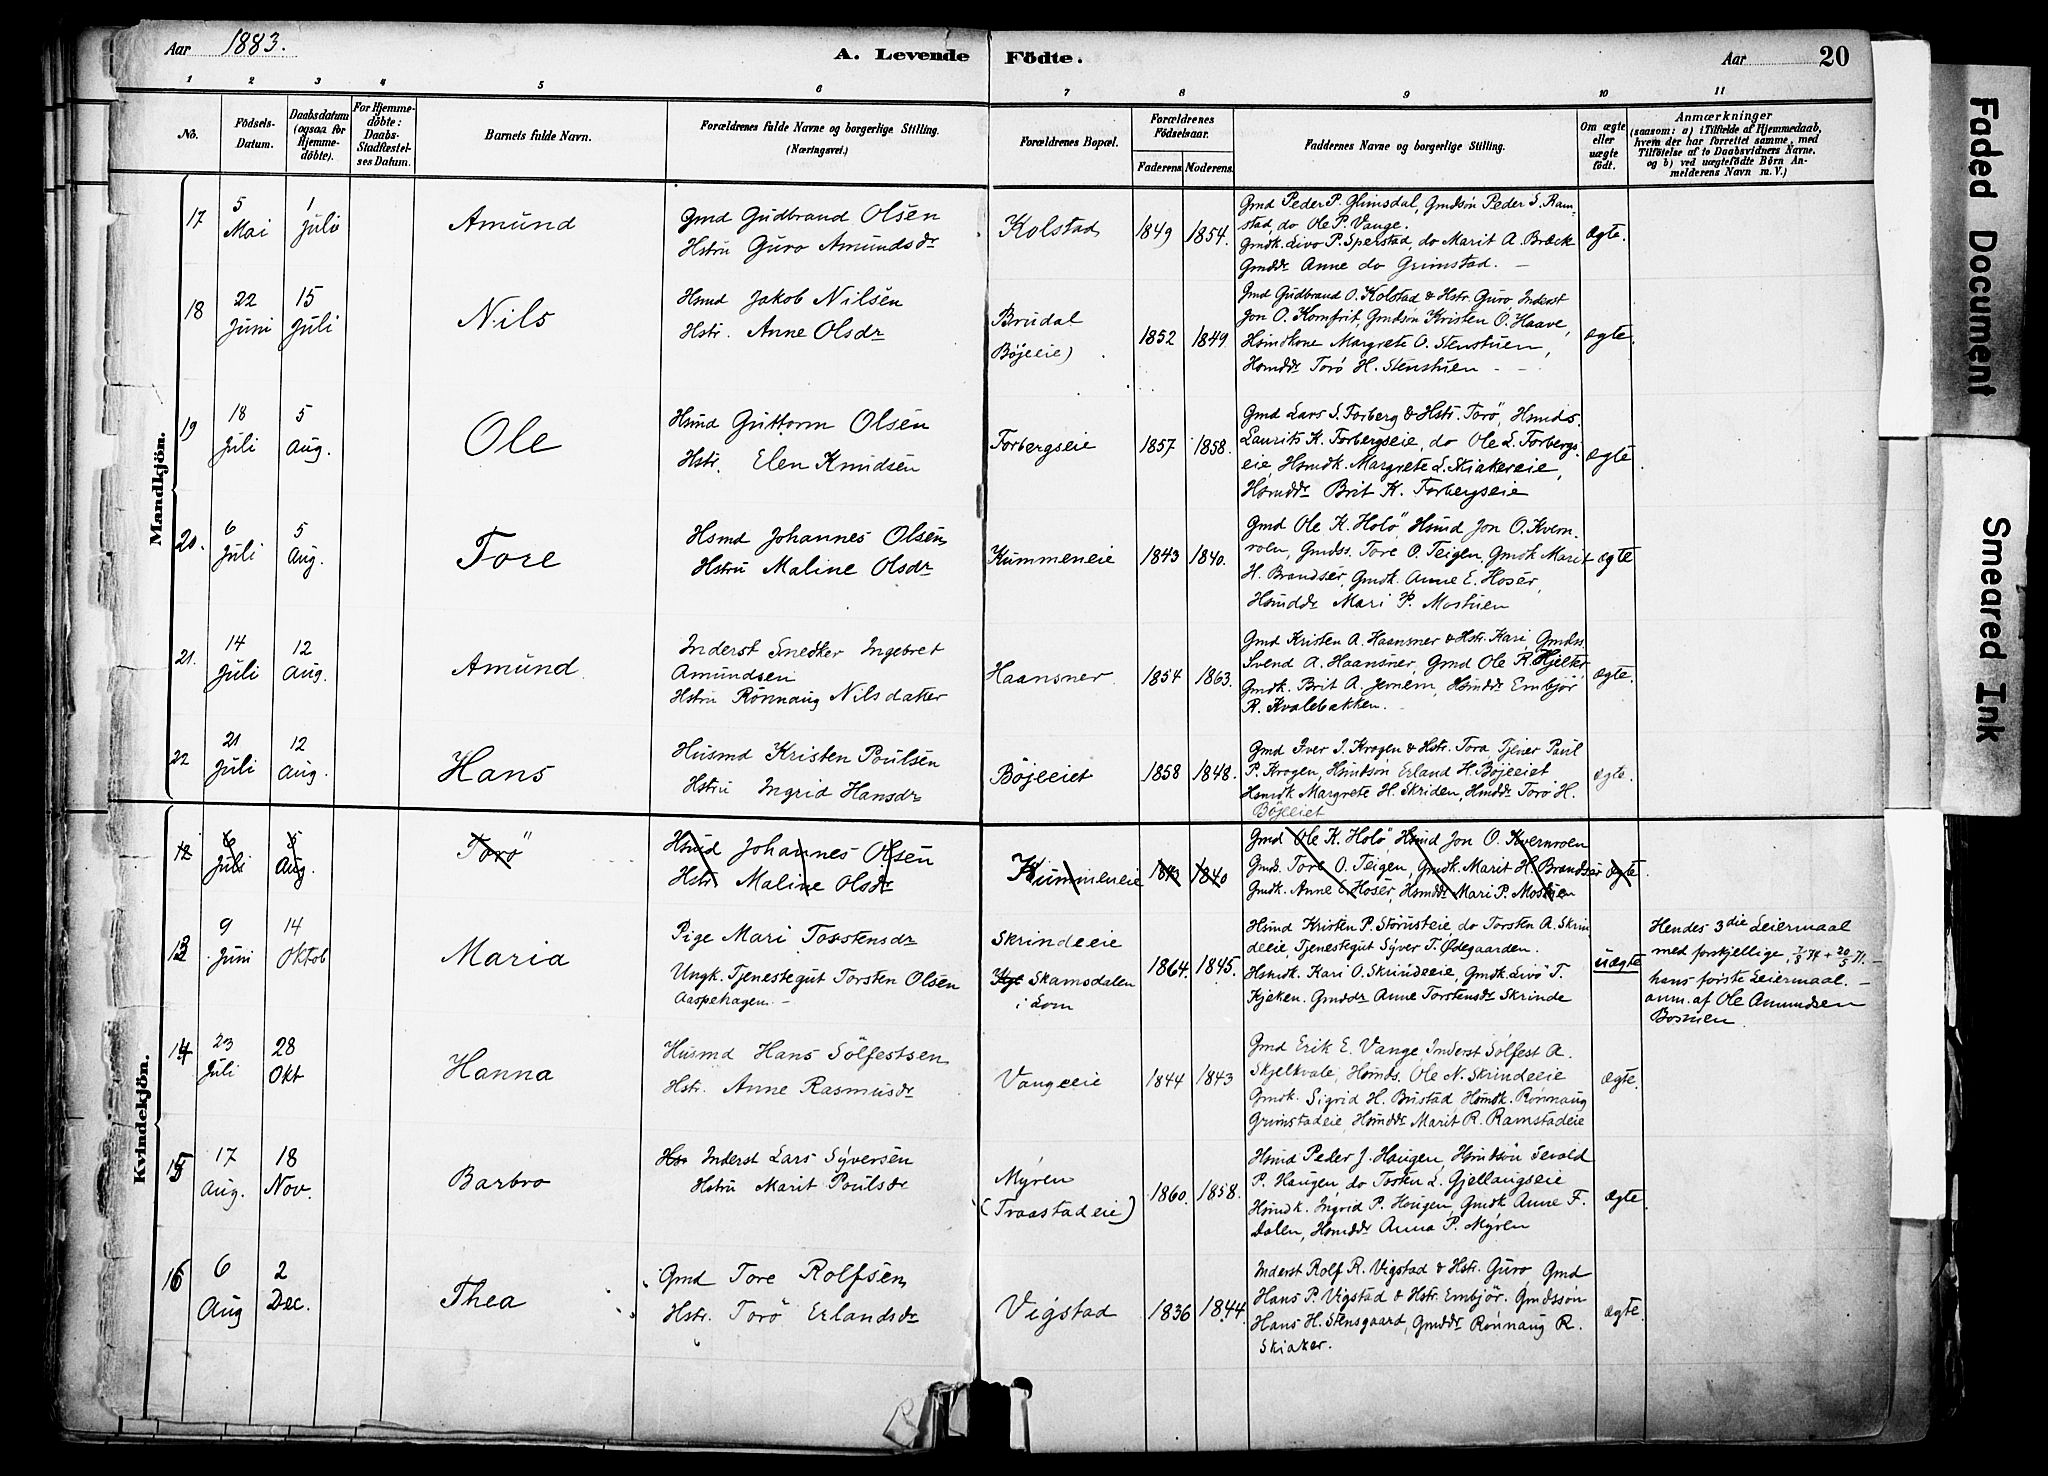 Aar 1883.
A. Levende Födte.
Aar 20
1 2 3 4 5 6 7 8 9 10 11
No.
Födsels-Datum.
Daabsdatum (ogsaa for Hjemme-döbte).
For Hjemme-döbte: Daabs-Stadfæstel-ses Datum.
Barnets fulde Navn.
Forældrenes fulde Navne og borgerlige Stilling.
(Næringsvei.)
Forældrenes Bopæl.
Forældrenes Födselsaar.
Faderens Moderens
Faddernes Navne og borgerlige Stilling.
Om ægte eller uægte födt.
Anmærkninger
(saasom: a) i Tilfælde af Hjemmedaab,
hvem der har forrettet samme, med
Tilföielse af to Daabsvidners Navne,
og b) ved uægtefödte Börn An-
melderens Navn m. V.)
Mandkjön.
17
5 Mai
1 Juli
Amund
Gmd Gudbrand Olsen
Hstru Guro Amundsdr
Kolstad
1849 1854.
Gmd Peder P. Glimsdal, Gmdsön Peder S. Ram-
stad, do Ole P. Vange.
Gmdk. Livo P. Sperstad, do Marit A. Bræck
Gmddr Anne do Grimstad. –
ægte.
18
22 Juni
15 Juli
Nils
Hsmd Jakob Nilsen
Hstr. Anne Olsdr
Brudal
Böjeeie)
1852 1849
Gmd Gudbrand O. Kolstad & Hstr. Guro Inderst
Jon O. Kornfrit, Gmdsön Kristen O. Haave,
Hsmdkone Margrete O. Stenstuen,
Hsmddr Torö H. Stenstuen - -
ægte.
19
18 Juli
5 Aug.
Ole
Hsmd Guttorm Olsen
Hstr. Elen Knudsen
Forbergseie
1857 1858.
Gmd Lars S. Forberg & Hstr. Torö, Hsmds.
Laurits K. Forbergseie, do Ole L. Forbergs
eie, Hsmdk. Margrete L. Skiakereie,
Hsmddr Brit K. Forbergseie
ægte
20.
6 Juli
5 Aug.
Tore
Hsmd Johannes Olsen,
Hstru Maline Olsdr
Kummeneie
1843 1840.
Gmd Ole K. Holö, Hsmd Jon O. Kvern-
roen, Gmdss. Tore O. Teigen, Gmdk Marit
H. Brandser, Gmdk. Anne E. Hoser,
Hsmddr Mari P. Mostuen
ægte
21.
14 Juli
12 Aug.
Amund
Inderst Snedker Ingebret
Amundsen
Hstru Rönnaug Nilsdatter
Haansner
1854 1863.
Gmd Kristen A. Haansner & Hstr. Kari, Gmdss.
Svend A. Haansner, Gmd Ole R. Hjelter
Gmdk. Brit A. Jernem, Hsmddr Embjör
R. Kvalebakken.
ægte.
22
21 Juli
12 Aug.
Hans
Husmd Kristen Poulsen
Hstru Ingrid Hansdr
Böjeeiet
1858 1848.
Gmd Iver I. Kragen & Hstr. Tora Tjener Paul
P. Kragen, Hsmdsön Erland H. Böjeeiet
Hsmdk Margrete H. Skriden, Hmddr Torö H.
Böjeeiet
ægte.
Kvindekjön.
12
6 Juli
5 Aug.
Torö
Hsmd Johannes Olsen
Hstr Maline Olsdr
Kummeneie
1843 1840
Gmd Ole K. Holö, Hsmd Jon O. Kvernroen
Gmds. Tore O. Teigen, Gmdk. Marit H. Brandser
Gmdk. Anne E. Hoser, Hsmddr Mari P. Mostuen
ægte
12
9 Juni
14 Oktob
Maria
Pige Mari Torstensdr
Ungk. Tjenestegut Torsten Olsen
Aaspehagen. –
Skrindeeie
Skamsdalen
i Lom
1864. 1845.
Hsmd Kristen P. Storusteie, do Torsten A. Skrin-
deeie, Tjenestegut Syver T. Ødegaarden.
Hsmdk. Kari O. Skrindeeie, Gmdk Livö T.
Kjeken. Gmddr Anne Torstensdr Skrinde
uægte
Hendes 3die Leiermaal
med forskjellige, 7/8 74 + 20/5 71. –
hans förste Leiermaal. –
anm. af Ole Amundsen
14
23 Juli
28 Okt
Hanna
Husmd Hans Sölfestsen
Hstr. Anne Rasmusdr
Vangeeie
1844 1843
Gmd Erik E. Vange, Inderst Sölfest A.
Skjelkvale, Hsmds. Ole N. Skrindeeie
Gmdk. Sigrid H. Bustad Hsmdk. Rönnaug
Grimstadeie, Hsmddr Marit R. Ramstadeie
ægte.
15
17 Aug.
18 Nov.
Barbro
Hstr Inderst Lars Syversen
Hstru Marit Poulsdr
Myren
(Traastadeie)
1860. 1858.
Hsmd Peder J. Haugen, Hsmdsön Sevald
P. Haugen, do Tosten L. Gjellaugseie
Hsmdk. Ingrid P. Haugen, Gmdk Anne F.
Dalen, Hsmddr Anna P. Myren
ægte.
16
6 Aug
2 Dec.
Thea
Gmd Tore Rolfsen,
Hstr. Torö Erlandsdr
Vigstad
1836 1844.
Inderst Rolf R. Vigstad & Hstr. Guro, Gmd
Hans P. Vigstad & Hstr. Embjör. Gmdssön
Hans H. Stensgaard, Gmddr Rönnaug R.
Skiaker.
ægte.
Faded Document
Smeared Ink